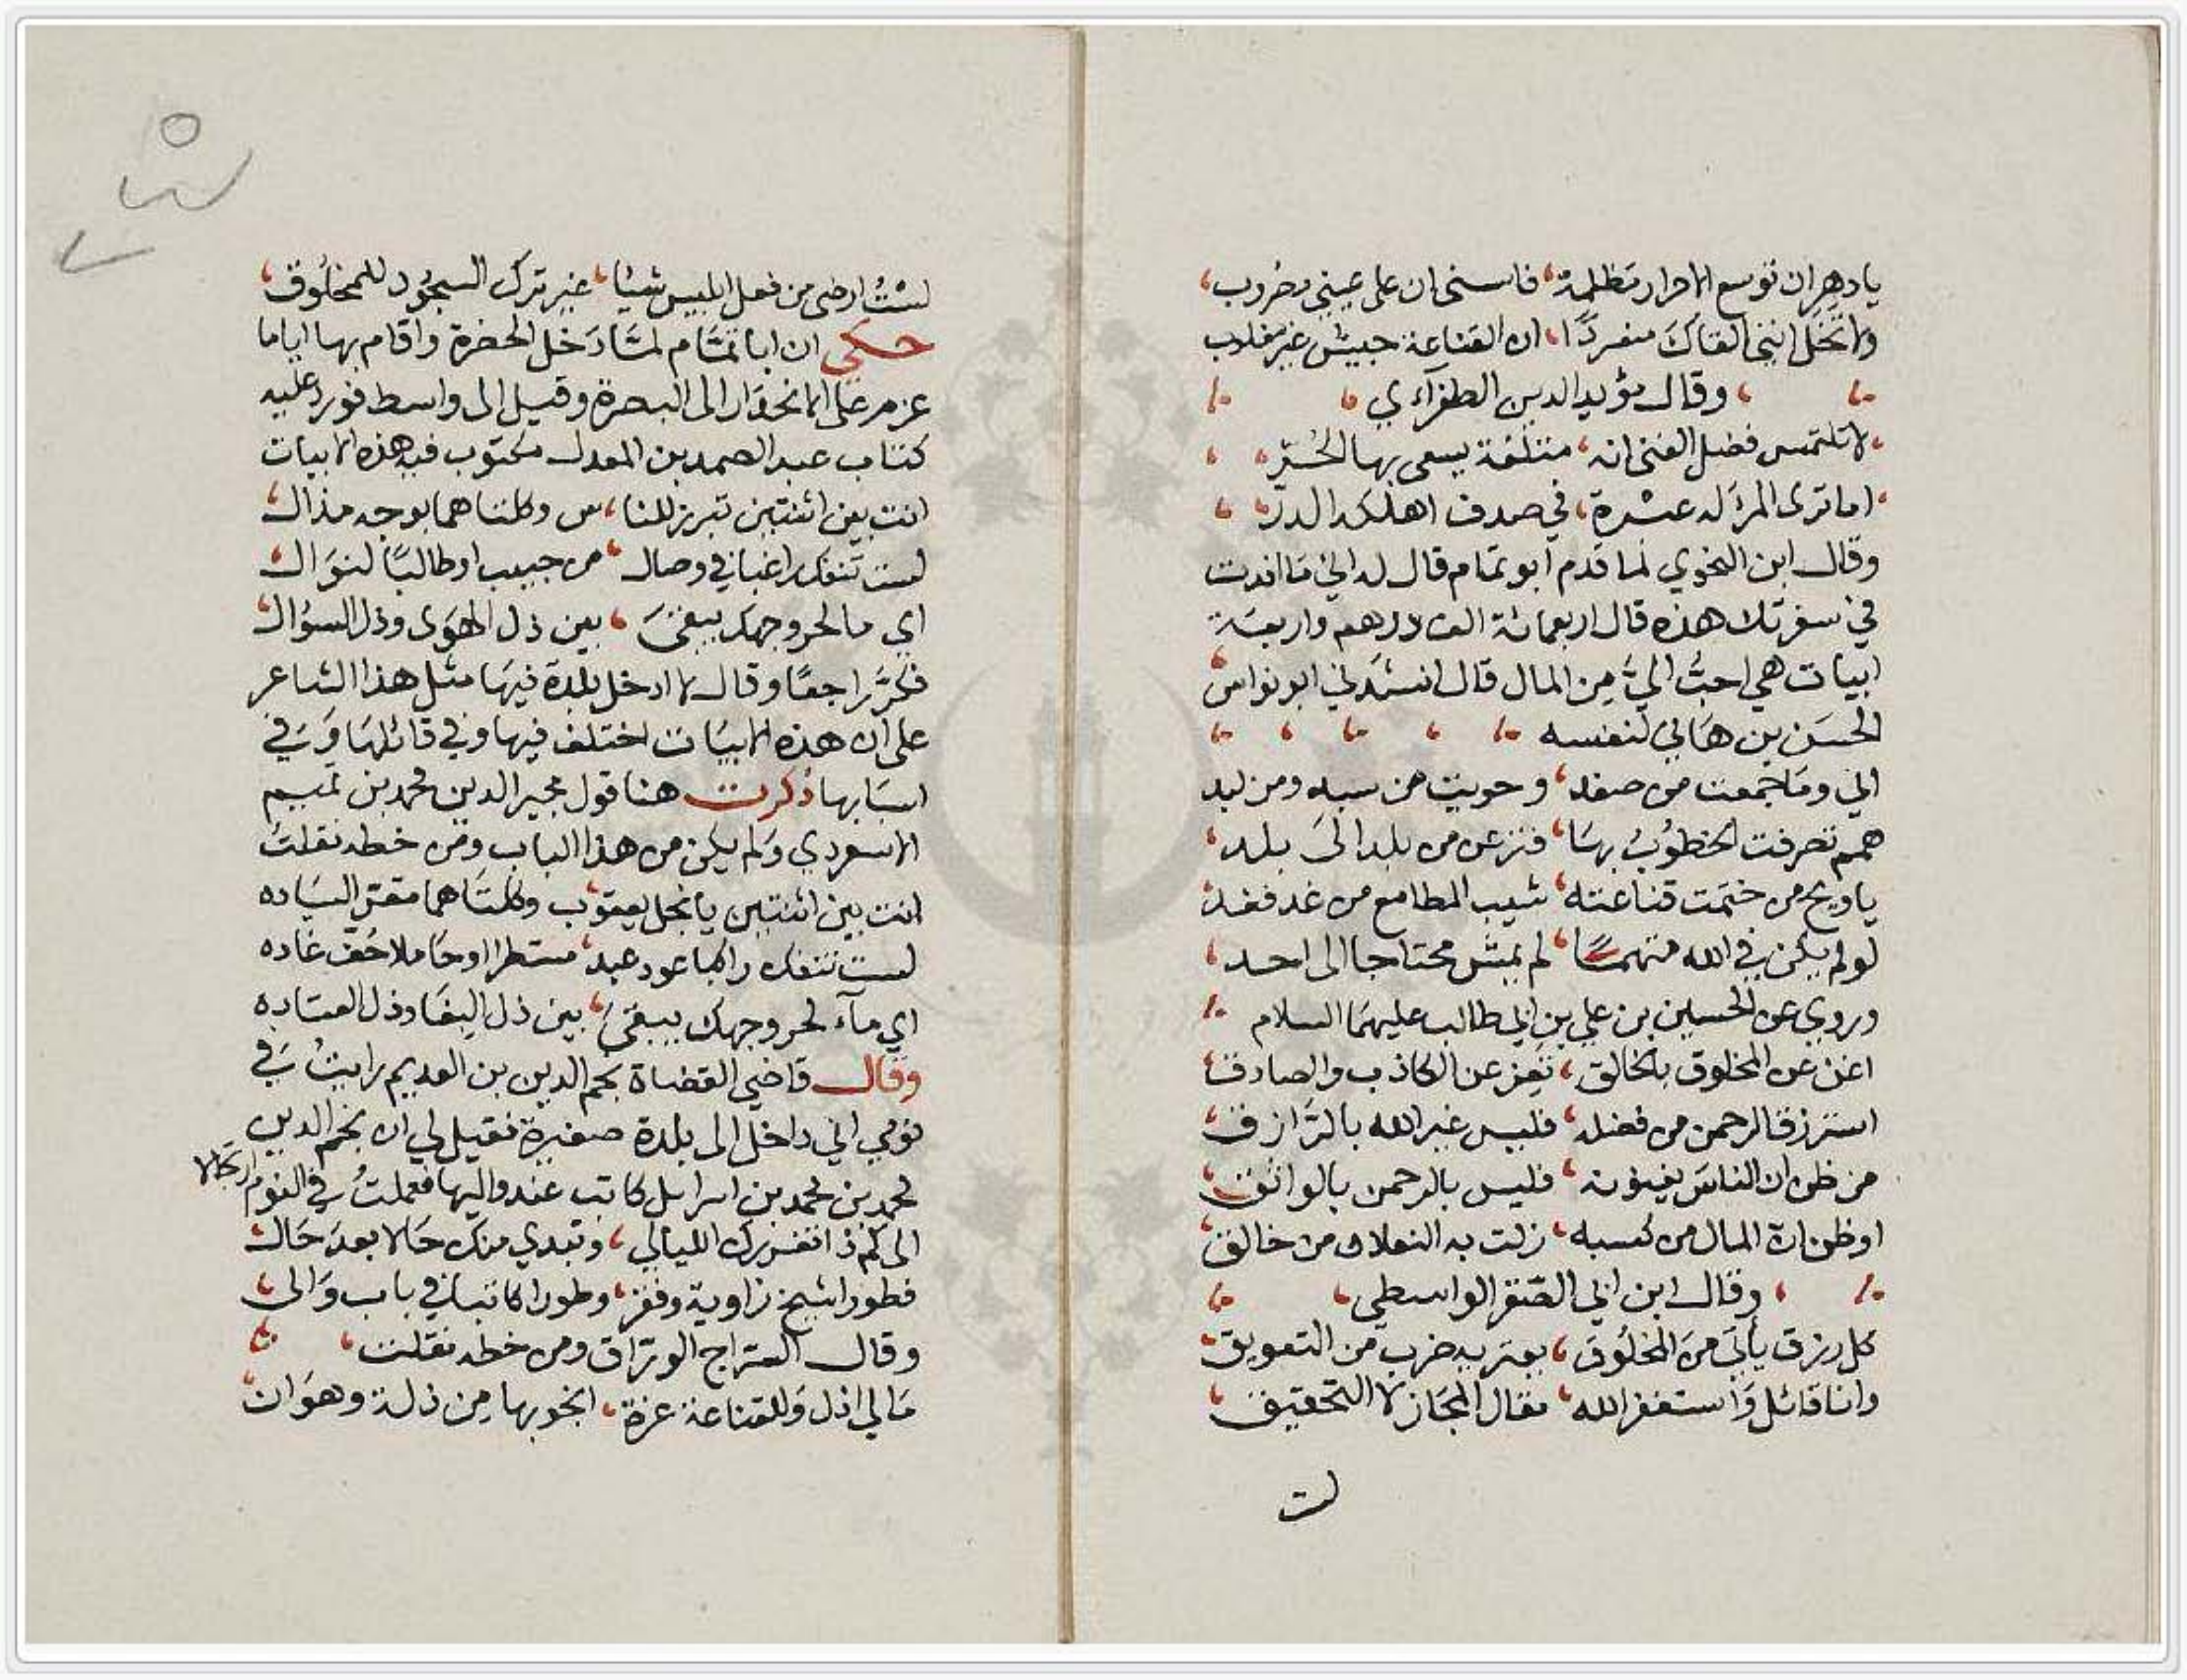 يا دهر ان توسع الاحرار مظلمة فاستثنى ان على عينى وخروب
ولا تخل اننى القاك منفردا ان القناعة جيش غير مغلوب
وقال مؤيد الدين الطغرآءي
لا تلتمس فضل الغنى انه متلفة يسعى بها الحر
اما ترى المرء له عسرة في صدف اهلكه الدر
وقال ابن النحوي لما قدم ابو تمام قال له ابي ما افدت
في سفرتك هذه قال اربعمائة الف درهم واربعة
ابيات هي احب الي من المال قال انشدني ابو نواس
الحسن بن هاني لنفسه
اني وما جمعت من صفد وحويت من سبد ومن لبد
همم تصرفت الخطوب بها فنزعن من بلد الى بلد
يا ويح من ختمت قناعته سبب المطامع من غد فغد
لو لم يكن في الله متهما لم يمش محتاجا الى احد
وروي عن الحسين بن علي بن ابي طالب عليهما السلام
اغن عن المخلوق بالخالق تغن عن الكاذب والصادق
استرزق الرحمن من فضله فليس غير الله بالرازق
من ظن ان الناس يغنونه فليس بالرحمن بالواثق
او ظن ان المال من كسبه زلت به النعلان من خالق
وقال ابن ابي الصقر الواسطي
كل رزق يأتي من المخلوق يعتريه ضرب من التعويق
وانا قائل واستغفر الله مقال المجاز لا التحقيق
لست
لست ارضى من فعل ابليس شيئا غير ترك السجود للمخلوق
حكي ان ابا تمام لما دخل الحضرة واقام بها اياما
عزم على الانحدار الى البصرة وقيل الى واسط فورد عليه
كتاب عبد الصمد بن المعدل مكتوب فيه هذه الابيات
انت بين اثنتين تبرز للنا س وكلتاهما بوجه مذال
لست تنفك راغبا في وصال من حبيب او طالبا لنوال
اي ما لحر وجهك يبقى بين ذل الهوى وذل السؤال
فكر راجعا وقال لا ادخل بلدة فيها مثل هذا الشاعر
على ان هذه الابيات اختلف فيها وفي قائلها وفي
اسبابها ذكرت هنا قول مجير الدين محمد بن تميم
الاسعردي ولم يكن من هذا الباب ومن خطه نقلت
انت بين اثنتين يا نجل يعقوب وكلتاهما مقر السياده
لست تنفك راكبا عود عبد مستطرا او حاملا خف غاده
اي مآء لحر وجهك يبقى بين ذل البغا وذل القياده
وقال قاضي القضاة نجم الدين بن العديم رايت في
نومي اني داخل الى بلدة صغيرة فقيل لي ان نجم الدين
محمد بن محمد بن اسرايل كاتب عند واليها فعملت في النوم ارتجالا
الى كم ذا تغررك الليالي وتبدي منك حالا بعد حال
فطورا شيخ زاوية وفقر وطورا كاتبا في باب والى
وقال السراج الوراق ومن خطه نقلت
ما لي اذل وللقناعة عزة انجو بها من ذلة وهوان